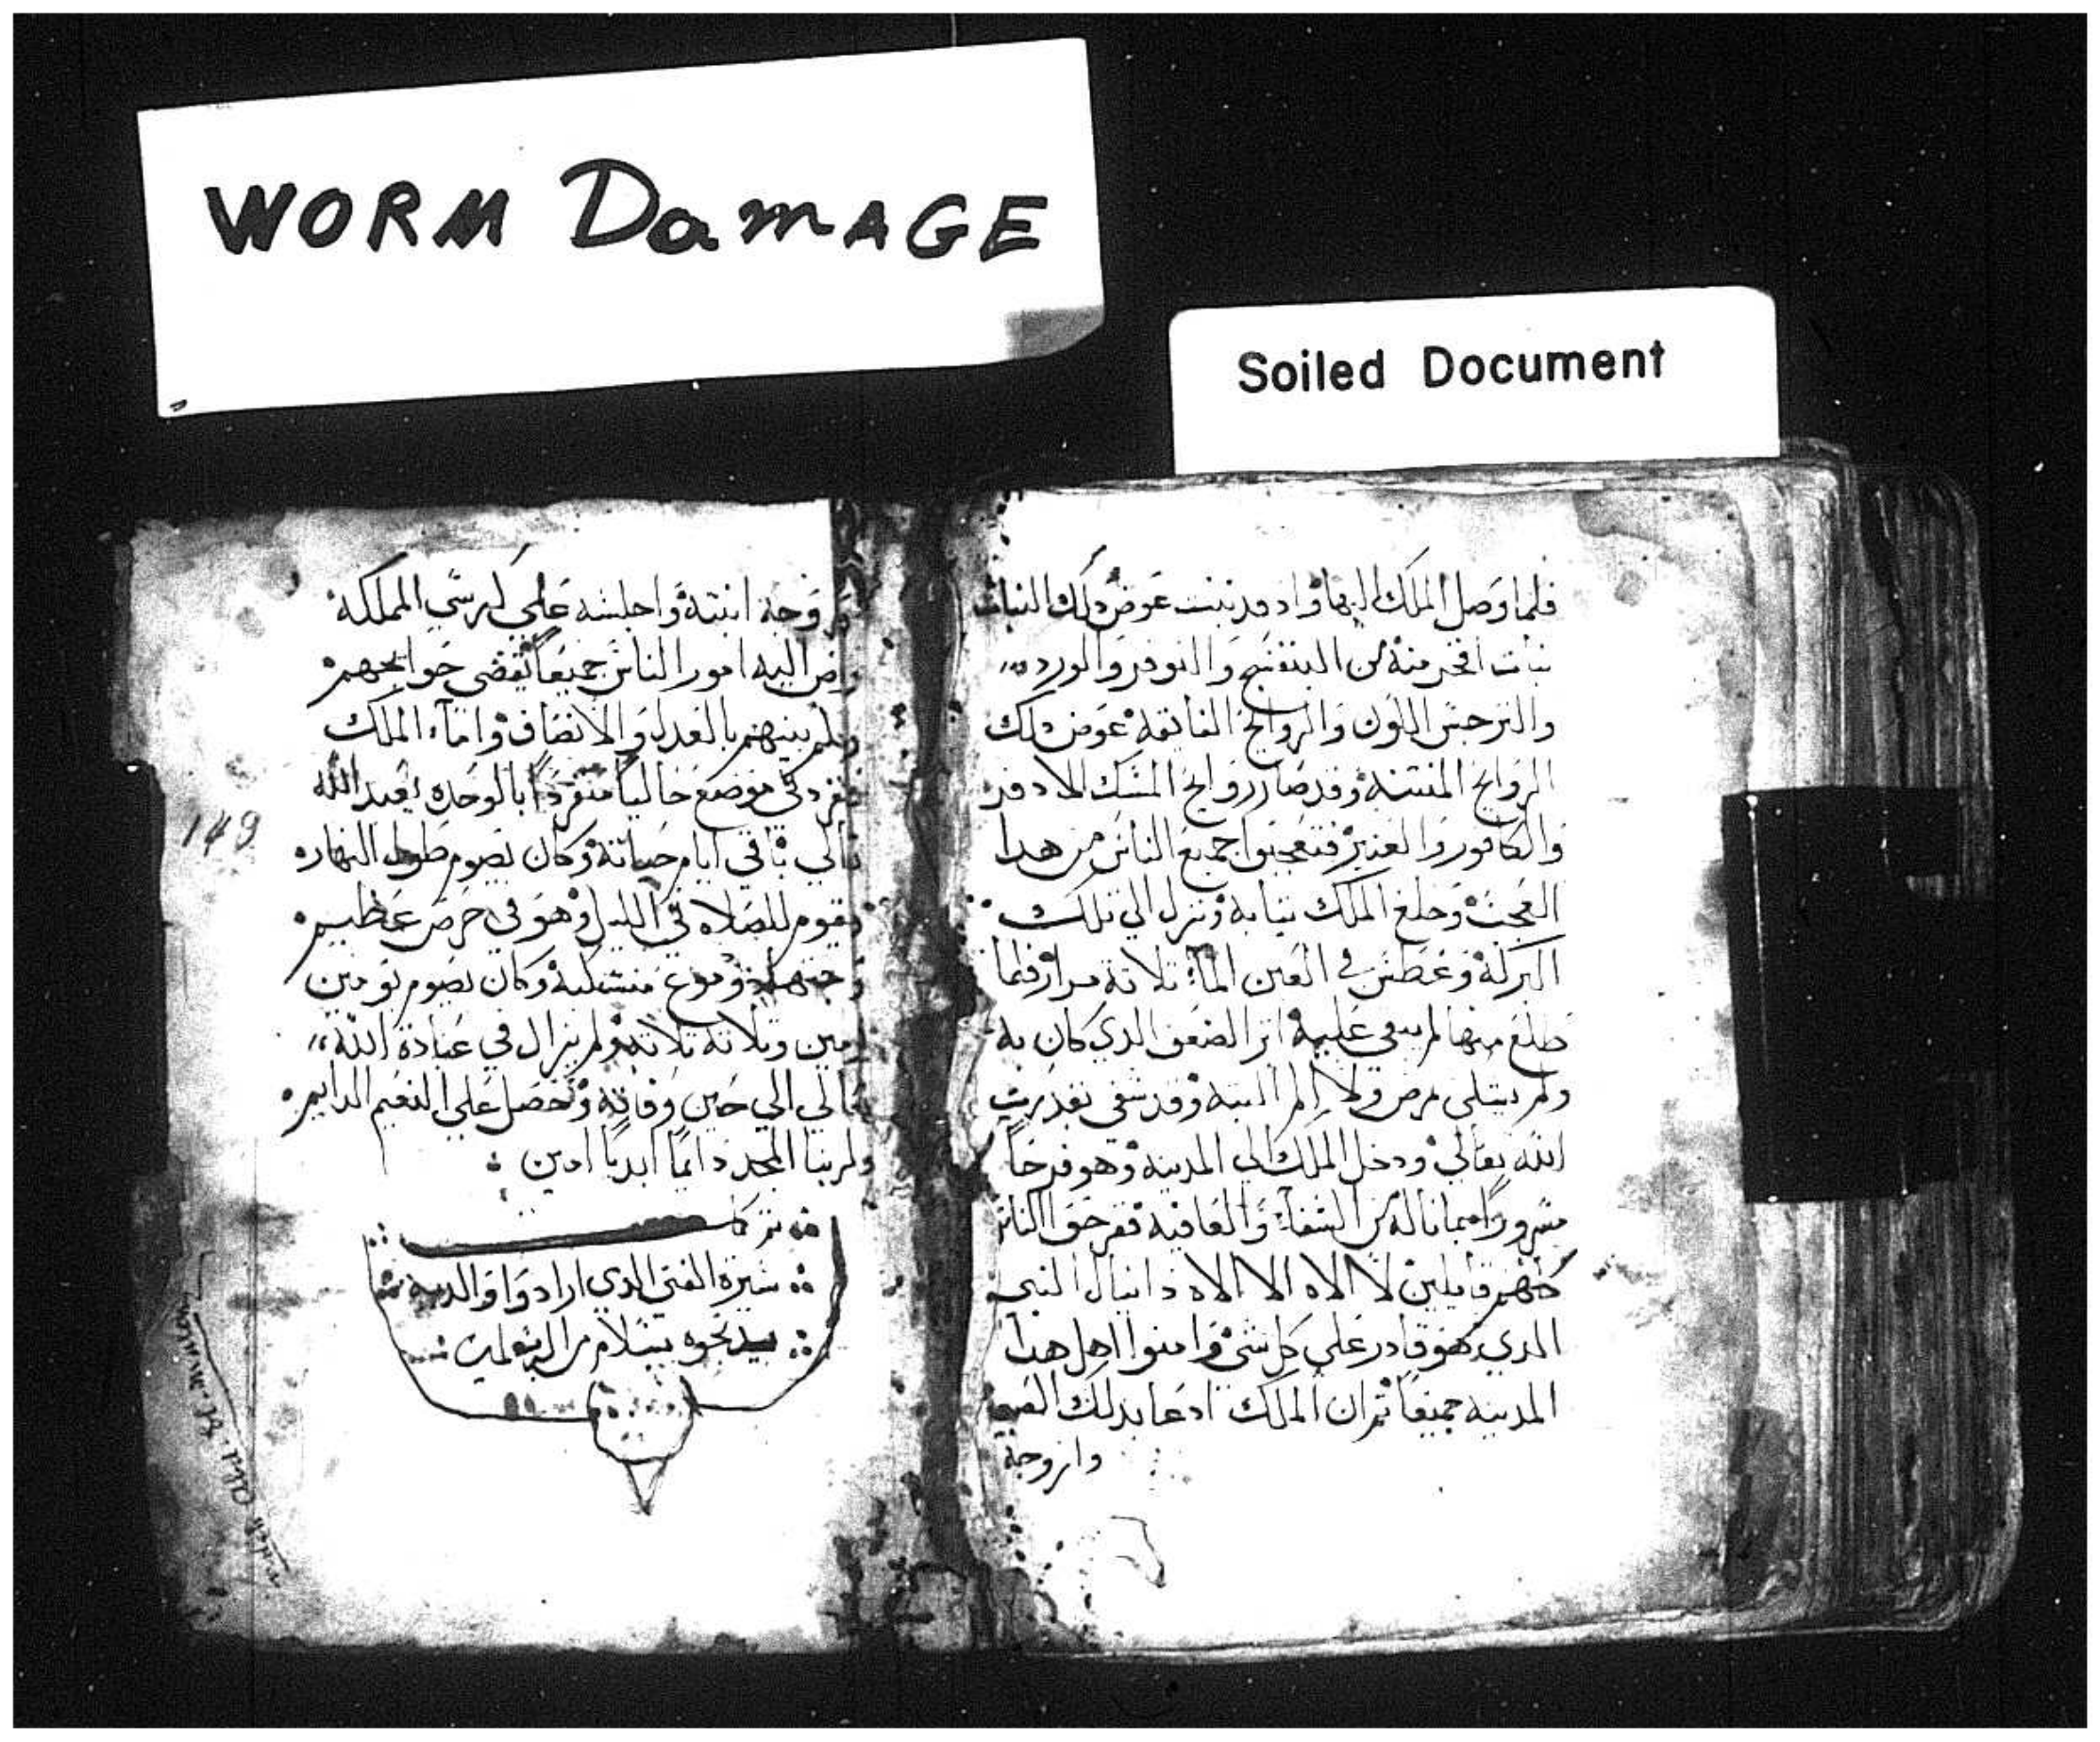 WORM DamAGE
Soiled Document
فلما وصل الملك اليها واد قد نبتت عوض دلك النبات
نبات افخر منه من البنفسج و النوفر والورد
والنرجس اللون والروايح الفايقه عوض دلك
الروايح المنتنه وقد صار روايح المسك الادفر
والكافور والعنبر فتعجبوا جميع الناس من هدا
العجب وخلع الملك تيابه ونزل الي تلك
البركة وغطس في العين الماء تلاتة مرار فلما
طلع منها لم يبقي عليه اتر الضعف الدي كان به
ولم يبتلي مرض ولا الم البته وقد شفي بقدرت
الله تعالي ودخل الملك الي المدينه وهو فرحا
مسرورا مما ناله من الشفاء والعافيه ففرحوا الناس
كلهم قايلين لا الاه الا الاه دانيال النبي
الدي هو قادر علي كل شي وامنوا اهل هدا
المدينه جميعا تم ان الملك ادعا بدلك
وازوجة
وجه ابنته واجلسه علي كرسي المملكة
اليه امور الناس جميعا يقضي حوايجهم
بينهم بالعدل والانصاف واماء الملك
في موضع خاليا منفردا بالوحده يعبد الله
باقي ايام حياته وكان يصوم طول النهار
يقوم للصلاه في الليل وهو في حرص عظيم
ودموع منسكبة وكان يصوم يومين
وتلاته تلاته ولم يزال في عبادة الله
تعالي الي حين وفاته وحصل علي النعيم الدايم
ولربنا المجد دايما ابديا امين
149
سيرة الفتي الدي اراد والديه
بسلام من الرب امين